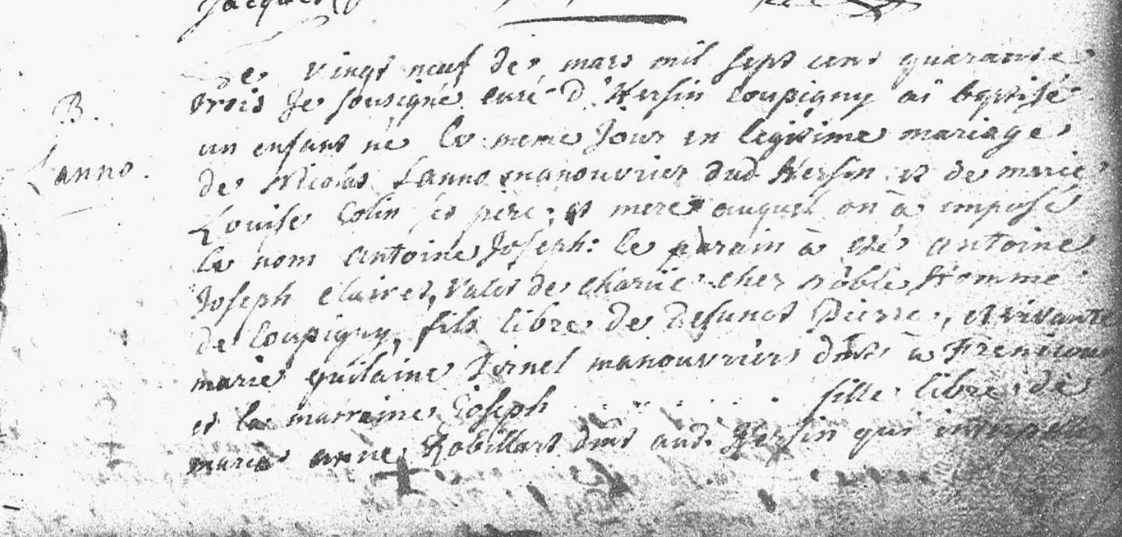 B.
Lanno.
Le vingt neuf de mars mil sept cent quarante
trois Je sousigné curé d'Hersin Coupigny ai baptisé
un enfant né le meme Jour en legitime mariage
de Nicolas Lanno manouvrier dud Hersin et de marie
Louise Colin ses pere et mere auquel on à imposé
le nom Antoine Joseph: le parain à eté antoine
Joseph Clairet, valet de charüe chez noble Homme
de Coupigny, fils libre de Defunct Pierre, et vivante
marie guilaine manouvriers dmts à
et la marreine Joseph . . . . . . . . fille libre de
marie anne Robillart dmt aud. Hersin qui